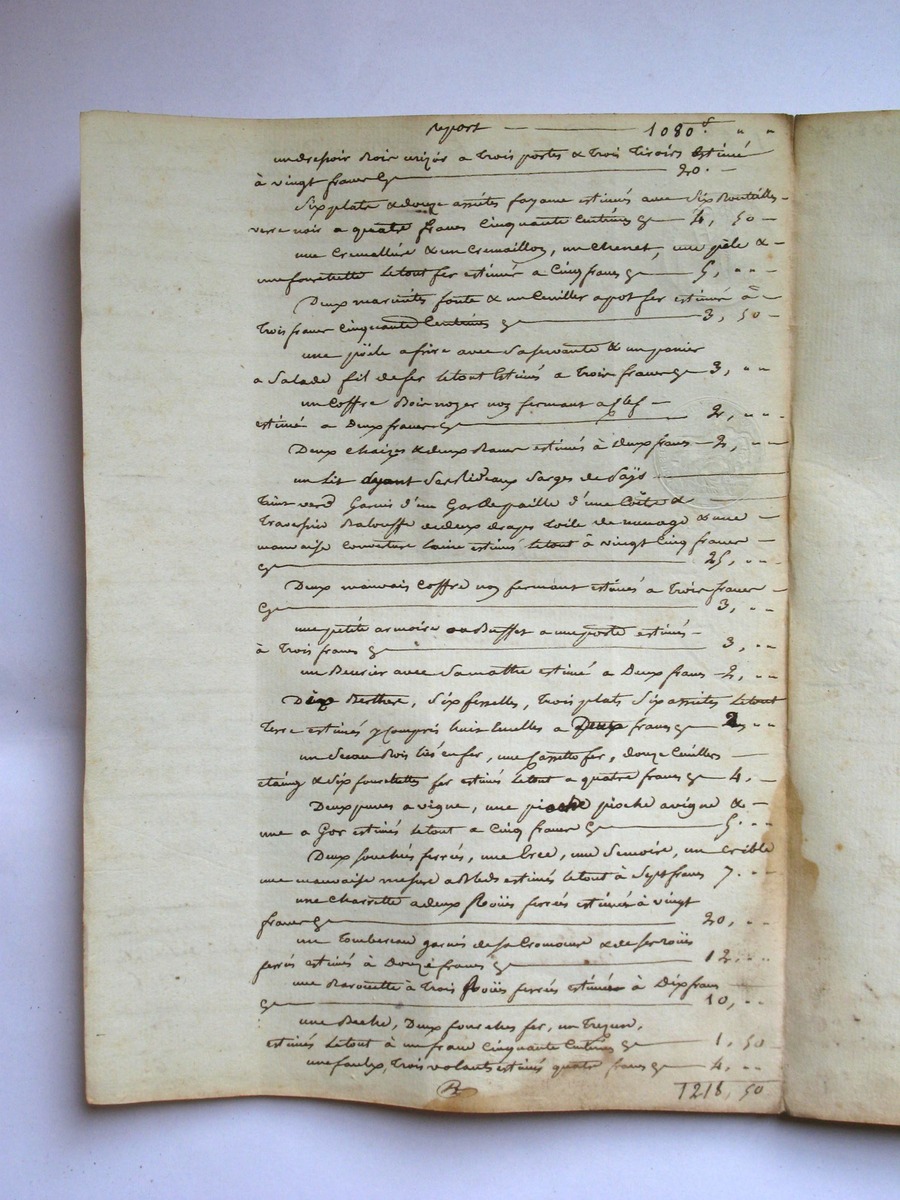 report 1080f. " "
un dressoir Bois a trois portes & trois tiroirs Estimé
à vingt francs Cy 20. -
Six plats & douze assiétes fayance estimés avec Six Bouteilles
verre noir a quatre francs Cinquante Centimes Cy 4, 50
une Cremallière & un Cremaillon, un Chenet, une pèle &
une fourchette Letout fer estimés a Cinq francs Cy 5, " "
Deux marmites fonte & un Cuiller apot fer estimés à
Trois francs Cinquante Centimes Cy 3, 50
une pöele afrire avec Saservante & un panier
a Salade fil defer Letout Estimés a Trois francs Cy 3, " "
un Coffre Bois noyer non fermant a Clef
estimé a Deux francs Cy 2, " "
Deux Chaizes & deux Bancs estimés à deux francs 2, " "
un Lit ayant Ses Rideaux Sarges de Païs
Teint verd Garni d'un Gardepaille d'une Coëte &
Traversin Balouffe de deux draps Toile de menage & une
mauvaise Couverture Laine estimés Letout à vingt Cinq francs
Cy 25, " "
Deux mauvais Coffre non fermant estimés a Trois francs
Cy 3, " "
une petite armoire ou Buffet a une porte estimés
à Trois francs Cy 3, " "
un Beurier avec Samatte estimé a Deux francs 2, " "
Dix Berthes, Six fesselles, Trois plats Six assiétes Letout
Terre estimés y Compris huit Ecuelles a Deux francs Cy 2 " "
un Seau Bois Liés enfer, une Cassette fer, douze Cuillers
etaing & Six fourchettes fer estimés Letout a quatre francs Cy 4. -
Deux a vigne, une pioche pioche avigne &
une a Gor estimés Letout a Cinq francs Cy 5. " "
Deux ferrés, une une Semoire, un Crible
une mauvaise mesure aBleds estimés Letout à Sept francs 7. " "
une Charrette adeux Roües ferrées estimés à vingt
francs Cy 20, " "
une Tombereau garnis de sa & de ses roües
ferrés estimés à Douze francs Cy 12. " "
une Barouette à Trois Roües ferrées estimés à Dix francs
Cy 10, " "
une Beche, Deux fourches fer, un
estimés Letout à un franc Cinquante Centimes Cy 1, 50
une faulx, Trois volants estimés quatre francs Cy 4, " "
1218, 50